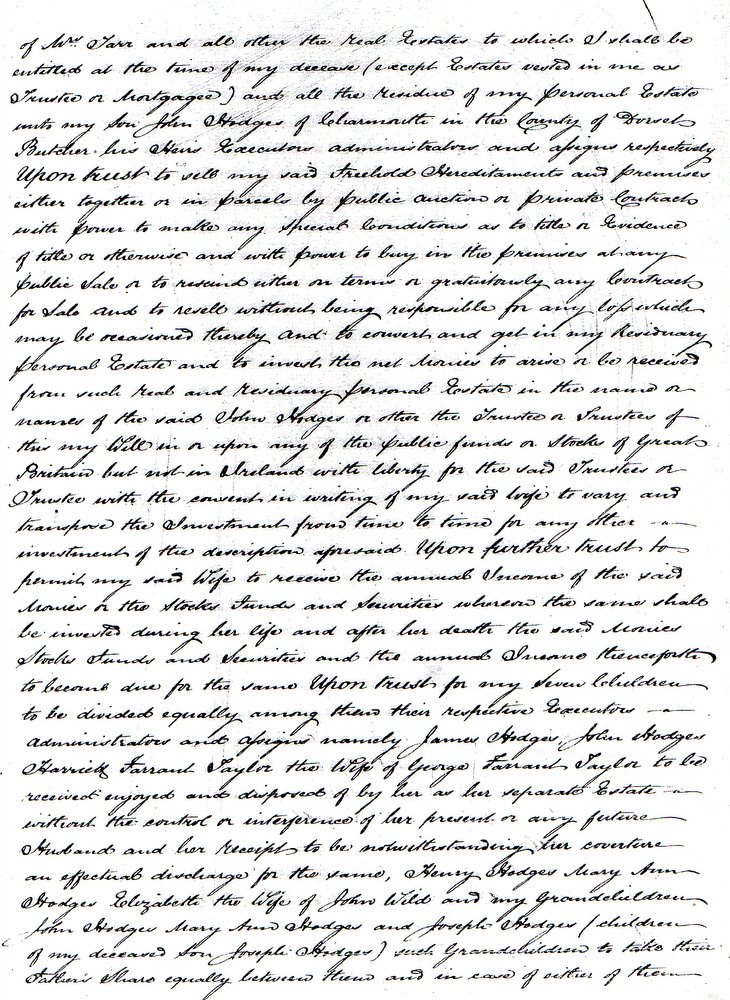 of Mrs Tarr and all other the real Estates to which I shall be
entitled at the time of my decease (except Estates vested in me as
Trustee or Mortgagee) and all the residue of my personal Estate
unto my Son John Hodges of Charmouth in the County of Dorset
Butcher his Heirs Executors administrators and assigns respectively
Upon trust to sell my said Freehold Hereditaments and premises
either together or in parcels by public auction or private Contract
with power to make any special Conditions as to title or Evidence
of title or otherwise and with power to buy in the premises at any
public Sale or to rescind either on terms or gratuitously any Contract
for Sale and to resell without being responsible for any loss which
may be occasioned thereby and to convert and get in my Residuary
personal Estate and to invest the net Monies to arise or be received
from such real and residuary personal Estate in the name or
names of the said John Hodges or other the Trustee or Trustees of
this my Will in or upon any of the public funds or Stocks of Great
Britain but not in Ireland with liberty for the said Trustees or
Trustee with the consent in writing of my said wife to vary and
transpose the Investment from time to time for any other
investment of the description aforesaid Upon further trust to
permit my said Wife to receive the annual Income of the said
Monies or the Stocks Funds and Securities whereon the same shall
be invested during her life and after her death the said Monies
Stocks Funds and Securities and the annual Income thenceforth
to become due for the same Upon trust for my Seven Children
to be divided equally among them their respective Executors
administrators and assigns namely James Hodges, John Hodges
Harriett Farrant Taylor the Wife of George Farrant Taylor to be
received enjoyed and disposed of by her as her separate Estate
without the control or interference of her present or any future
Husband and her receipt to be notwithstanding her coverture
an effectual discharge for the same, Henry Hodges Mary Ann
Hodges Elizabeth the Wife of John Wild and my Grandchildren
John Hodges Mary Ann Hodges and Joseph Hodges (children
of my deceased Son Joseph Hodges) such Grandchildren to take their
Father's Share equally between them and in case of either of them